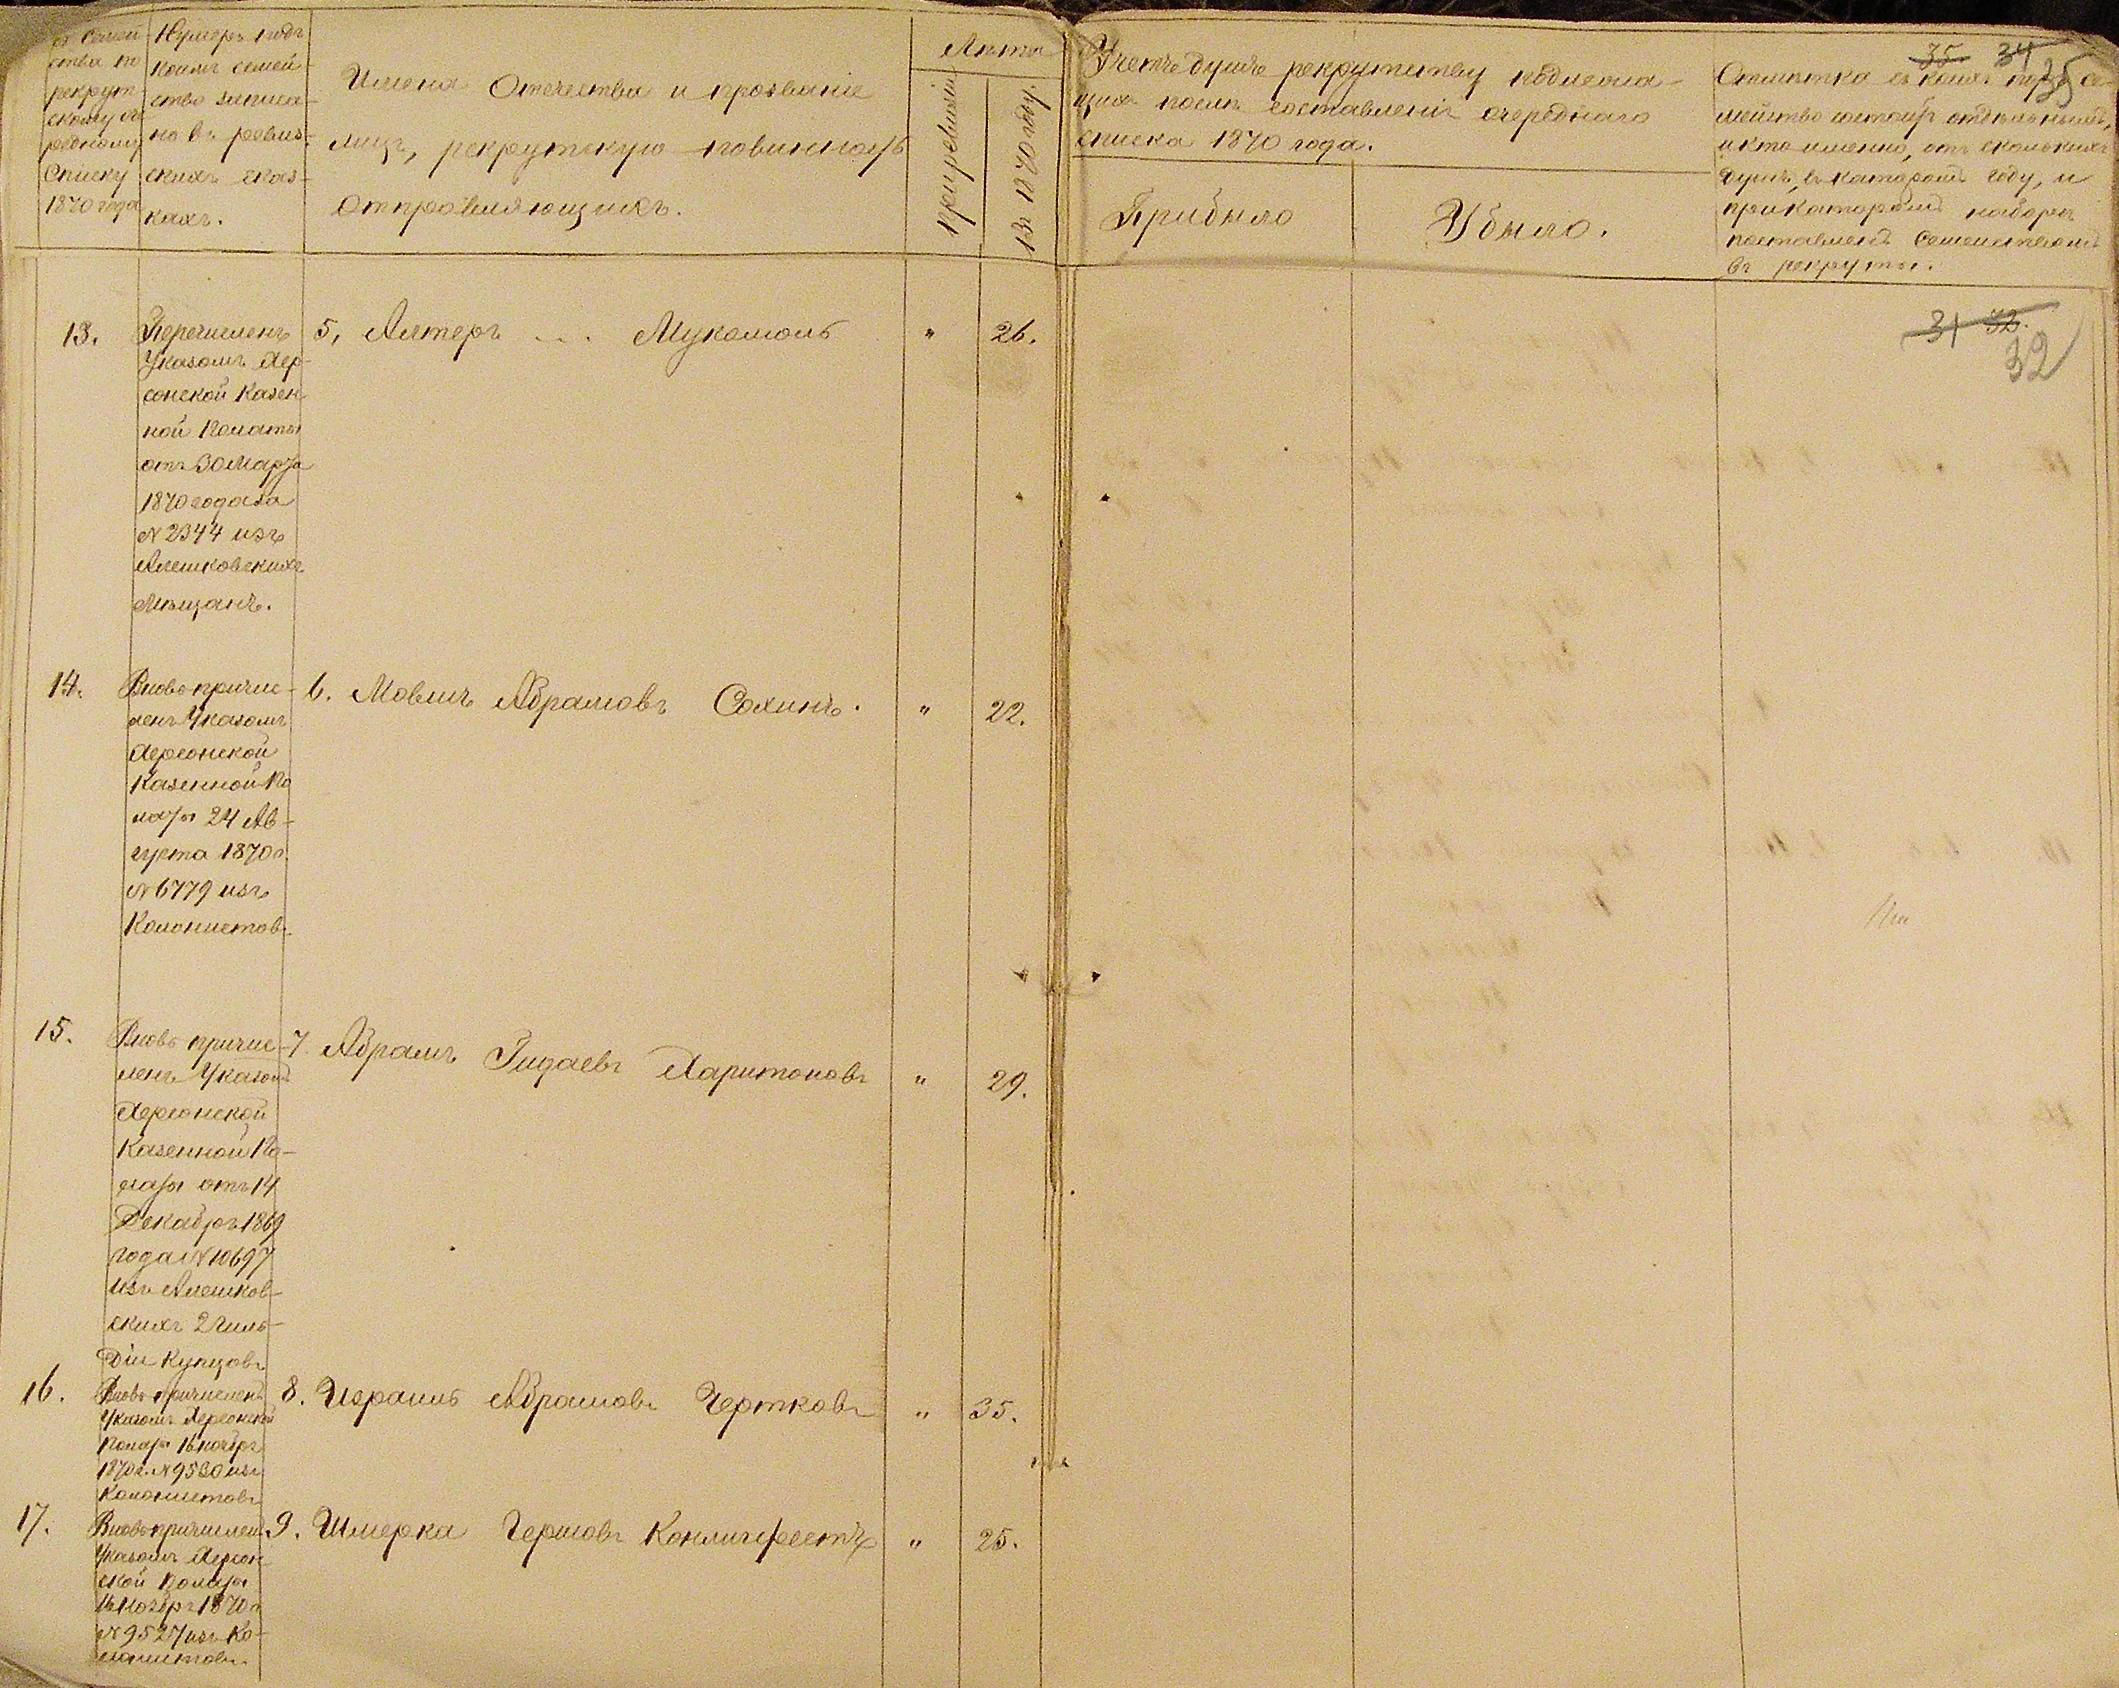 № Семей-
ства по
рекрут
скому оче
редному
Списку
1870 года
Нумеръ подъ
коимъ семей-
ство записа-
но въ ревиз-
скихъ сказ-
кахъ.
Имена Отчества и прозваніе
лицъ, рекрутскую повинность
отправляющихъ.
Лѣта
по ревизіи
въ 1870 году.
Учетъ душъ рекрутству подлежа-
щихъ послѣ составленія очереднаго
списка 1870 года.
Прибыло
Убыло.
35 34
35
Отмѣтка съ коихъ поръ се-
мейство состоитъ отдѣльнымъ,
и кто именно, отъ сколькихъ
душъ, въ которомъ году, и
при которомъ наборѣ
поставленъ семействомъ
въ рекруты.
31 32.
32
13.
Перечисленъ
Указомъ Хер-
сонской Казен
ной Полаты
отъ 30 Марта
1870 года за
№ 2344 изъ
Алешковскихъ
Мѣщанъ.
5, Алтеръ ... Мукомолъ " 26.
14.
Вновь причис-
ленъ Указомъ
Херсонской
Казенной По
латы 24 Ав-
густа 1870 г.
№ 6779 изъ
Колонистовъ.
6. Мовша Абрамовъ Сохинъ. " 22.
15.
Вновь причис-
ленъ Указомъ
Херсонской
Казенной По-
латы отъ 14
Декабря 1869
года № 10697
изъ Алешков-
скихъ 2 гиль-
діи Купцовъ
7. Абрамъ Гидаевъ Харитоновъ " 29.
16.
Вновь причисленъ
Указомъ Херсонской
Полаты 16 ноября
1870 г. № 9530 изъ
Колонистовъ
8. Израиль Абрамовъ Чертковъ " 35.
17.
Вновь причислен
Указомъ Херсон
ской Полаты
16 Ноября 1870 г.
№ 9527 изъ Ко-
лонистовъ.
9. Шмерка Гершовъ " 25.